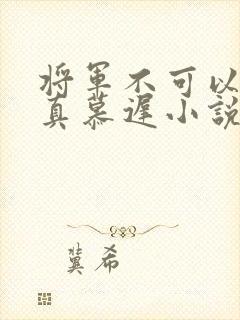 将军不可以
真慕遲小說
冀希